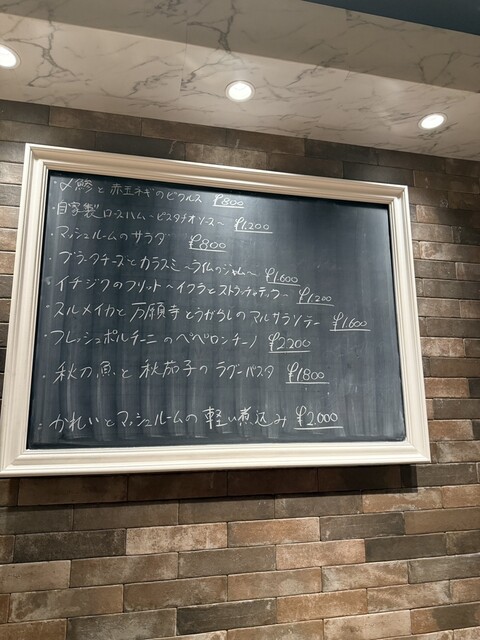 ・〆鯵と赤玉ネギのピクルス ¥800
・自家製ロースハム〜ピスタチオソース〜 ¥1,200
・マッシュルームのサラダ ¥800
・ブラータチーズとカラスミ〜ライムのジャム〜 ¥1,600
・イチジクのフリット〜イクラとストラッチャテッラ〜 ¥1,200
・スルメイカと万願寺とうがらしのマルサラソテー ¥1,600
・フレッシュポルチーニのペペロンチーノ ¥2,200
・秋刀魚と秋茄子のラグーパスタ ¥1,800
・かれいとマッシュルームの軽い煮込み ¥2,000